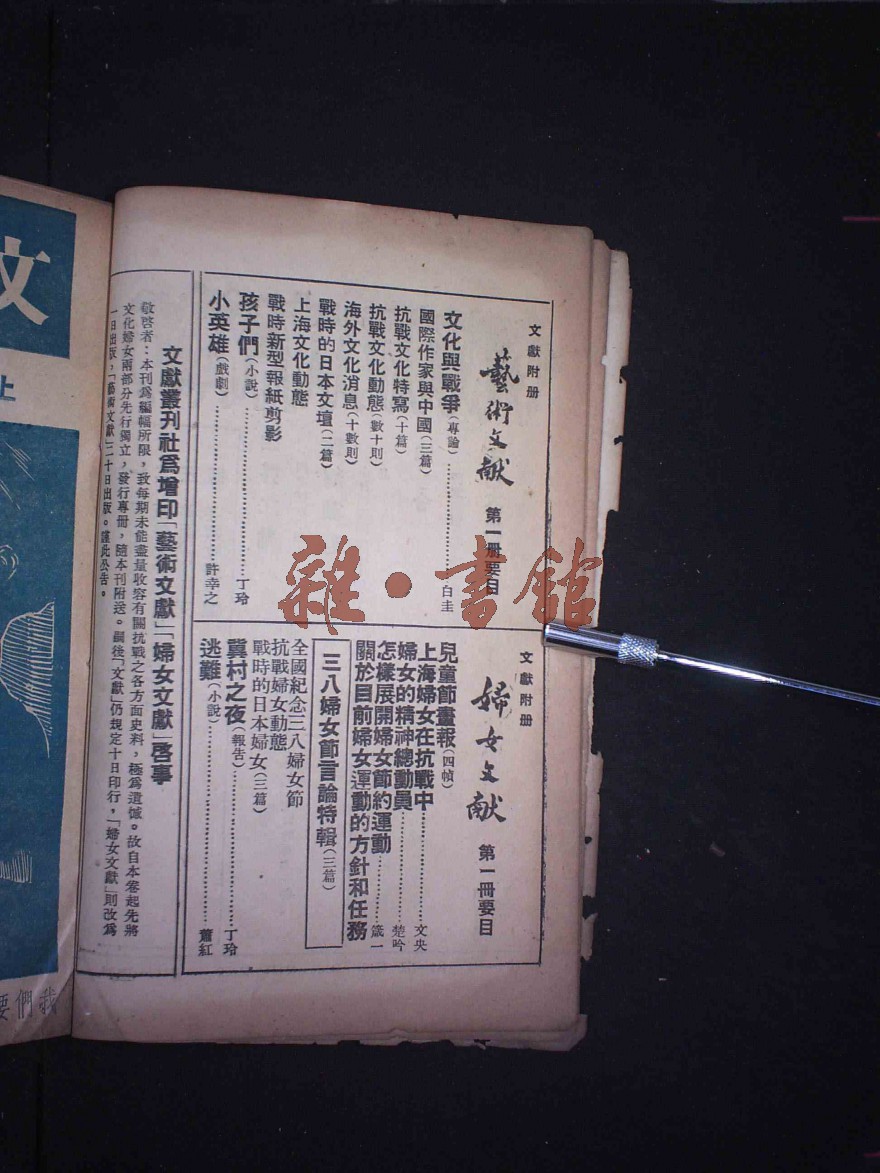 文獻附册
藝術文獻 第一册要目
文化與戰爭(專論)⋯⋯⋯⋯白圭
國際作家與中國(三篇)
抗戰文化特寫(十篇)
抗戰文化動態(數十則)
海外文化消息(十數則)
戰時的日本文壇(二篇)
上海文化動態
戰時新型報紙剪影
孩子們(小說)⋯⋯⋯⋯丁玲
小英雄(戲劇)⋯⋯⋯⋯許幸之
文獻附册
婦女文献 第一册要目
兒童節畫報(四幀)
上海婦女在抗戰中⋯⋯⋯⋯文央
婦女的精神總動員⋯⋯⋯⋯楚吟
怎樣展開婦女節約運動⋯⋯⋯⋯箴一
關於目前婦女運動的方針和任務
三八婦女節言論特輯(三篇)
全國紀念三八婦女節
抗戰婦女動態
戰時的日本婦女(三篇)
冀村之夜(報告)⋯⋯⋯⋯丁玲
逃難(小說)⋯⋯⋯⋯蕭紅
文獻叢刊社爲增印「藝術文獻」「婦女文獻」啓事
敬啓者:本刊爲編幅所限,致每期未能盡量收容有關抗戰之各方面史料,極爲遺憾。故自本卷起先將
文化婦女兩部分先行獨立,發行專册,隨本刊附送。嗣後「文獻」仍規定十日印行,「婦女文獻」則改爲
一日出版,「藝術文獻」二十日出版。謹此公告。
文
上
我們要
雜·書館